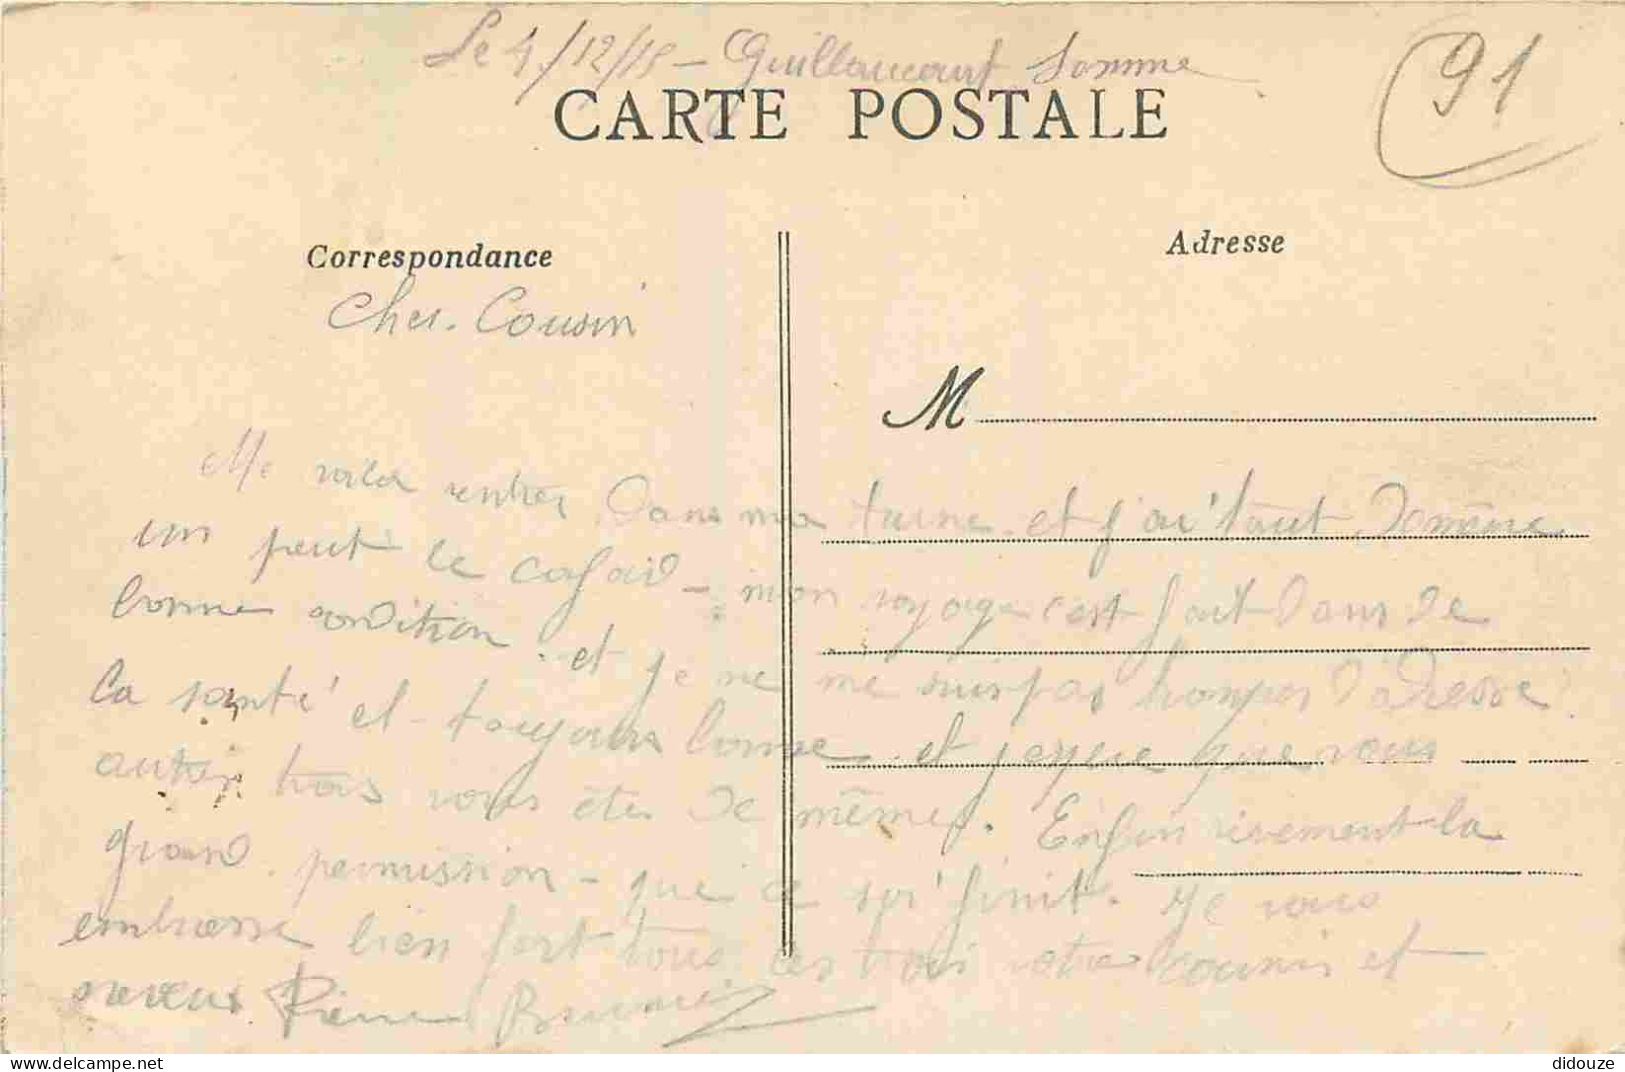 Le 4/12/15 - Guillaucourt Somme
91
CARTE POSTALE
Correspondance
Adresse
Cher Cousin
M
Me voila rentrer Dans ma turne et j'ai tout Domême
un peut le cafaid - mon voyage c'est fait Dans De
bonne condition et je ne me suis pas tromper D'adresse
la santé et toujours bonne et j'espere que vous
autre trois vous êtes De mêmes. Enfin vivement la
grand permission - que ce soi finit. Je vous
embrasse bien fort tous les trois votre cousin et
neveux Pierre
didouze